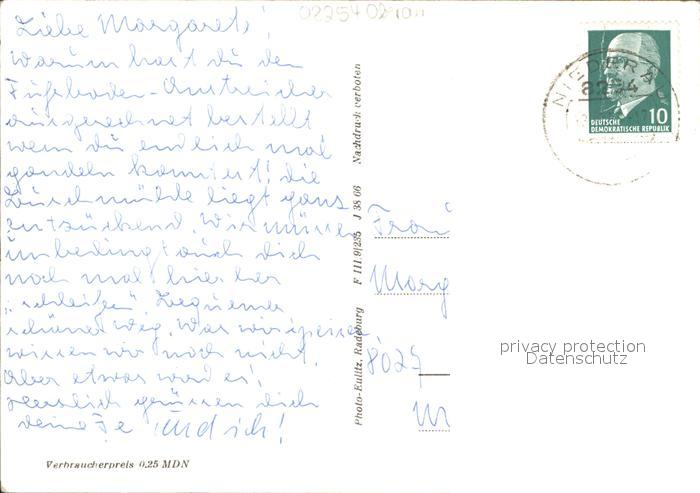 02254 0240
Liebe Margaret!
Warum hast du den
Fußboden-Anstreicher
ausgerechnet bestellt
wenn du endlich mal
gondeln konntest! die
mühle liegt ganz
entzückend. Wir müssen
unbedingt auch dich
noch mal hier her
"schleifen". Bequemer
schöner Weg. Was wir speisen,
wissen wir noch nicht.
Aber etwas wird es!
Herzlich grüssen dich
deine Fe und ich!
Verbraucherpreis 0,25 MDN
Photo-Eulitz, Radeburg F III/9/235 J 38 66 Nachdruck verboten
NIEDERA
8254
10
DEUTSCHE
DEMOKRATISCHE REPUBLIK
Frau
Marg
8025
privacy protection
Datenschutz